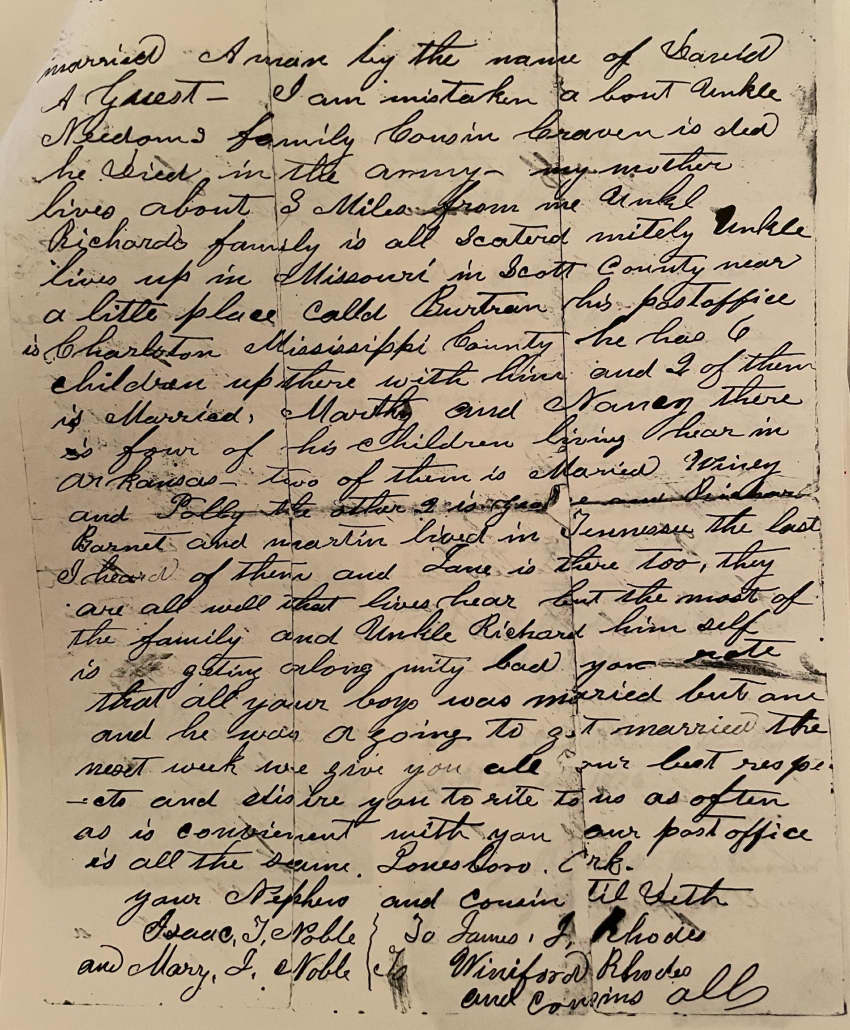 married A man by the name of David
A Guest — I am mistaken a bout Unkle
Needoms family Cousin Craven is ded
he Died in the army — my mother
lives about 3 Miles from me Unkl
Richards family is all Scaterd mitely Unkle
lives up in Missouri in Scott County near
a little place calld Burtran his postoffice
is Charlston Mississippi County he has 6
children up there with him and 2 of them
is Married, Marthy and Nancy there
is four of his children living hear in
arkansas — two of them is Maried Winey
and Polly the other 2 is and
Barnet and martin lived in Tennessee the last
I heard of them and Jane is there too, they
are all well that lives hear but the most of
the family and Unkle Richard him self
is geting along prity bad you rote
that all your boys was maried but one
and he was a going to get married the
next week we give you all our best respe-
-cts and disire you to rite to us as often
as is convienent with you our post office
is all the same. Jonesboro. Ark.
your Nephew and cousin til Deth
Isaac, T, Noble { To James, J, Rhodes
and Mary, J, Noble { to Winiford Rhodes
and cousins all